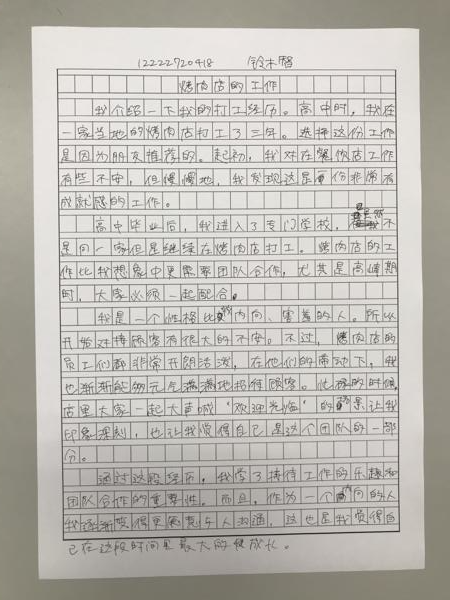 12222720418 铃木智
烤肉店的工作
我介绍一下我的打工经历。高中时，我在
一家当地的烤肉店打工了三年。选择这份工作
是因为朋友推荐的。起初，我对在餐饮店工作
有些不安，但慢慢地，我发现这是一份非常有
成就感的工作。
高中毕业后，我进入了专门学校，虽然不
是同一家但是继续在烤肉店打工。烤肉店的工
作比我想象中更需要团队合作，尤其是高峰期
时，大家必须一起配合。
我是一个性格比较内向、害羞的人。所以
开始对接顾客有很大的不安。不过，烤肉店的
员工们都非常开朗活泼，在他们的带动下，我
也渐渐能够元气满满地招待顾客。忙碌的时候
店里大家一起大声喊“欢迎光临”的场景让我
印象深刻，也让我觉得自己是这个团队的一部
分。
通过这段经历，我学了接待工作的乐趣和
团队合作的重要性。而且，作为一个内向的人
我逐渐变得更愿意与人沟通，这也是我觉得自
己在这段时间里最大的成长。